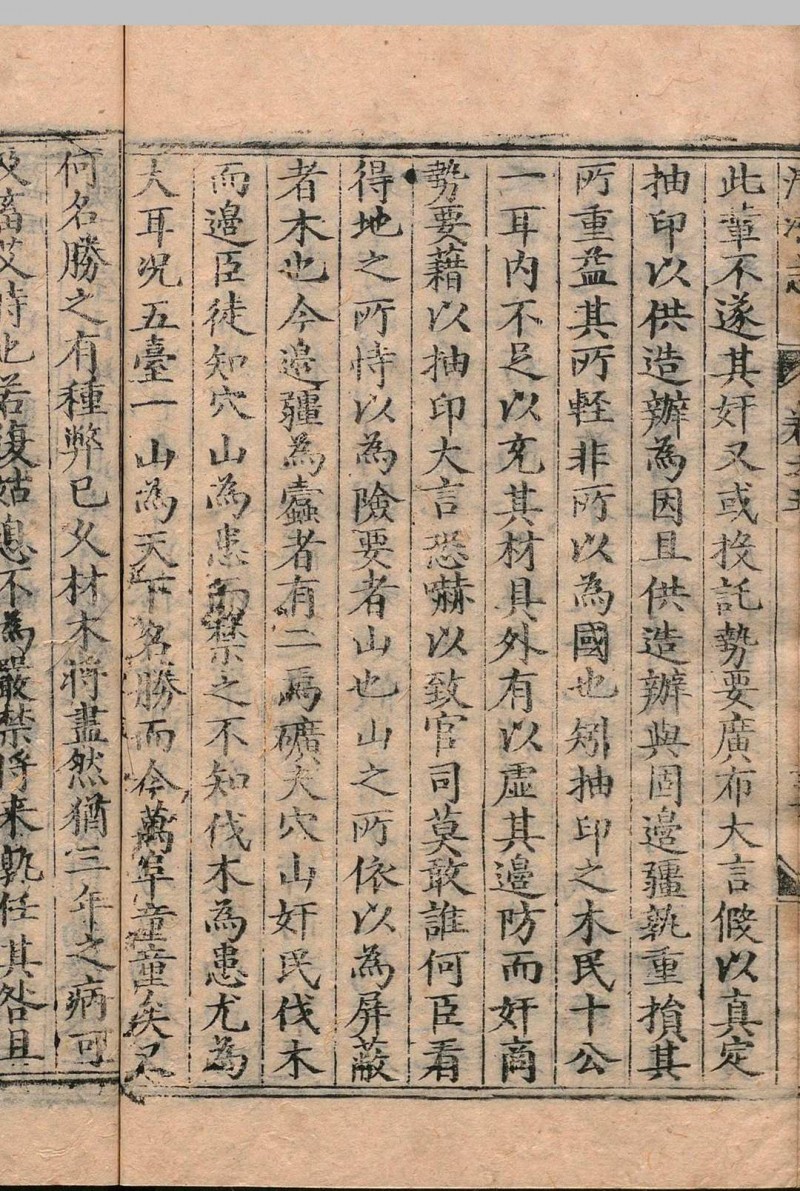 清凉志 卷之五
此輩不遂其奸又或投託勢要廣布大言假以真定
抽印以供造辦為因且供造辦與固邊疆孰重損其
所重益其所輕非所以為國也矧抽印之木民十公
一耳内不足以充其材具外有以虛其邊防而奸商
勢要藉以抽印大言恐嚇以致官司莫敢誰何臣看
得地之所恃以為險要者山也山之所依以為屏蔽
者木也今邊疆為蠹者有二焉礦夫穴山奸民伐木
而邊臣徒知穴山為患而禁之不知伐木為患尤為
大耳况五臺一山為天下名勝而今萬阜童童矣又
何名勝之有種弊已久材木將盡然猶三年之病可
及畜艾時也若復姑息不為嚴禁將来孰任其咎且